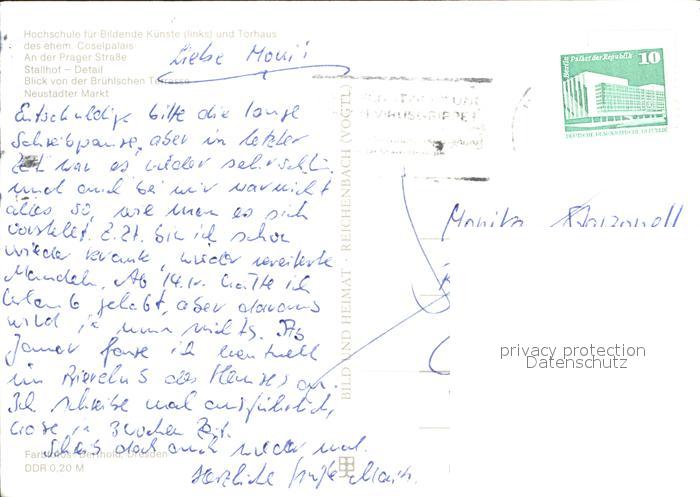 Hochschule für Bildende Künste (links) und Torhaus
des ehem. Coselpalais
An der Prager Straße
Stallhof – Detail
Blick von der Brühlschen Terrasse
Neustädter Markt
Liebe Moni!
Entschuldige bitte die lange
Schreibpause, aber in letzter
Zeit war es wieder sehr
und auch bei mir war nicht
alles so, wie man es sich
vorstellt. Z.Zt. bin ich schon
wieder krank, wieder vereiterte
Mandeln. Ab 14. hätte ich
Urlaub gehabt, aber daraus
wird ja nun nichts. Ab
Januar fange ich eventuell
im des an.
Ich schreibe mal ausführlich,
in Zeit.
Schreib doch auch wieder mal.
Herzliche Grüße
Farbfotos: Berthold, Dresden
DDR 0,20 M
BILD UND HEIMAT · REICHENBACH (VOGTL)
Berlin, Palast der Republik
10
DEUTSCHE DEMOKRATISCHE REPUBLIK
Monika
privacy protection
Datenschutz